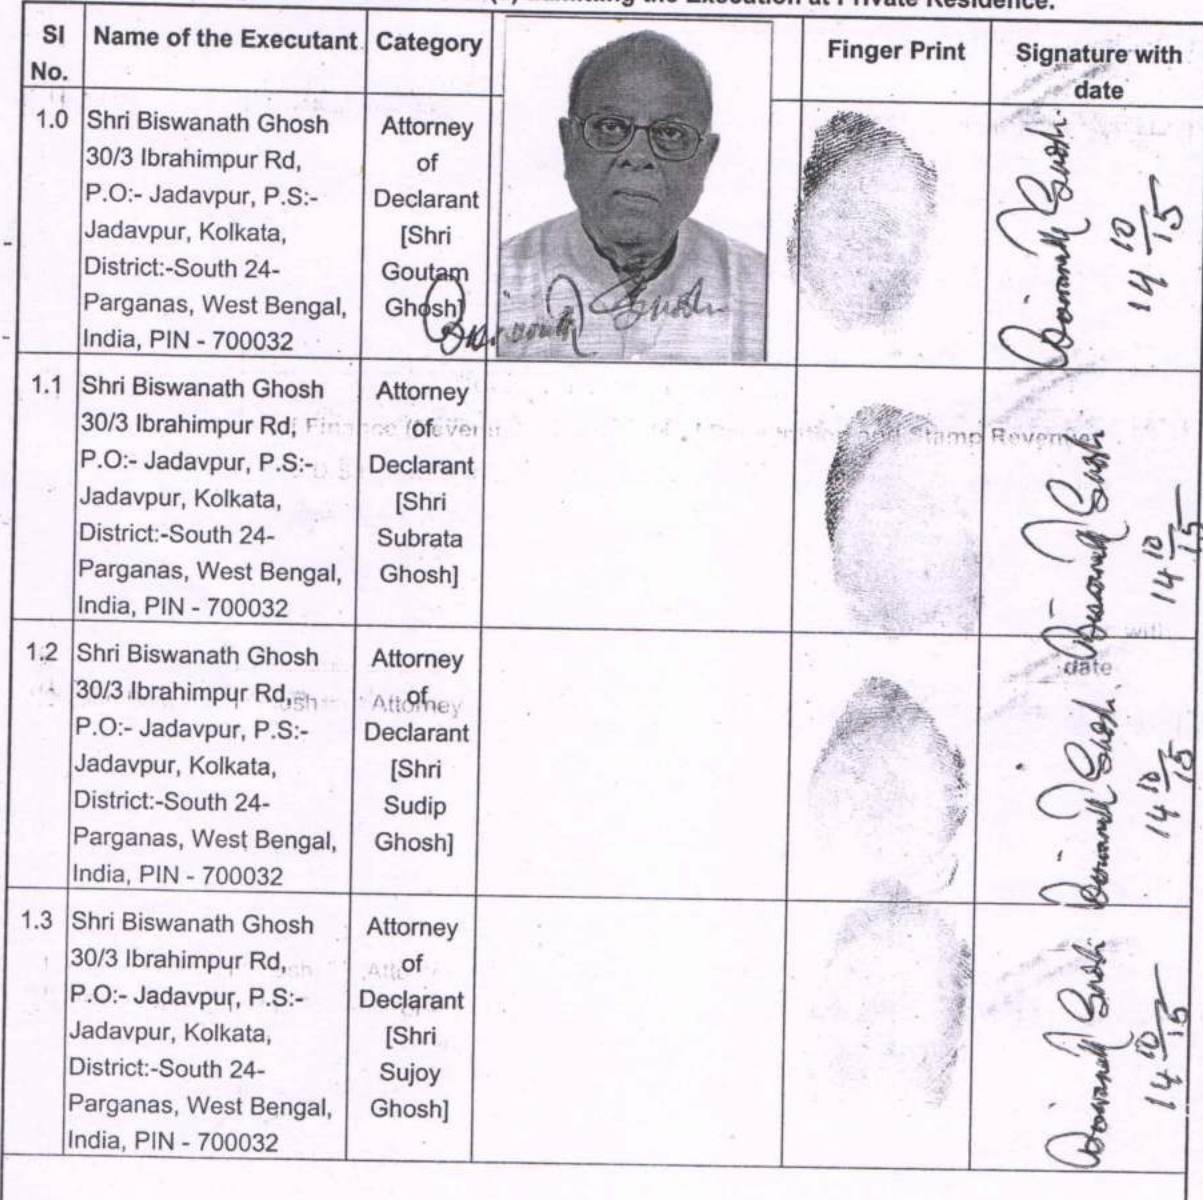 the Execution at Private Residence.
Sl No.
Name of the Executant
Category
Finger Print
Signature with date
1.0
Shri Biswanath Ghosh
30/3 Ibrahimpur Rd,
P.O:- Jadavpur, P.S:-
Jadavpur, Kolkata,
District:-South 24-
Parganas, West Bengal,
India, PIN - 700032
Attorney
of
Declarant
[Shri
Goutam
Ghosh]
Biswanath Ghosh
Biswanath Ghosh
14/10/15
1.1
Shri Biswanath Ghosh
30/3 Ibrahimpur Rd,
P.O:- Jadavpur, P.S:-
Jadavpur, Kolkata,
District:-South 24-
Parganas, West Bengal,
India, PIN - 700032
Attorney
of
Declarant
[Shri
Subrata
Ghosh]
Biswanath Ghosh
14/10/15
1.2
Shri Biswanath Ghosh
30/3 Ibrahimpur Rd,
P.O:- Jadavpur, P.S:-
Jadavpur, Kolkata,
District:-South 24-
Parganas, West Bengal,
India, PIN - 700032
Attorney
of
Declarant
[Shri
Sudip
Ghosh]
Biswanath Ghosh
14/10/15
1.3
Shri Biswanath Ghosh
30/3 Ibrahimpur Rd,
P.O:- Jadavpur, P.S:-
Jadavpur, Kolkata,
District:-South 24-
Parganas, West Bengal,
India, PIN - 700032
Attorney
of
Declarant
[Shri
Sujoy
Ghosh]
Biswanath Ghosh
14/10/15